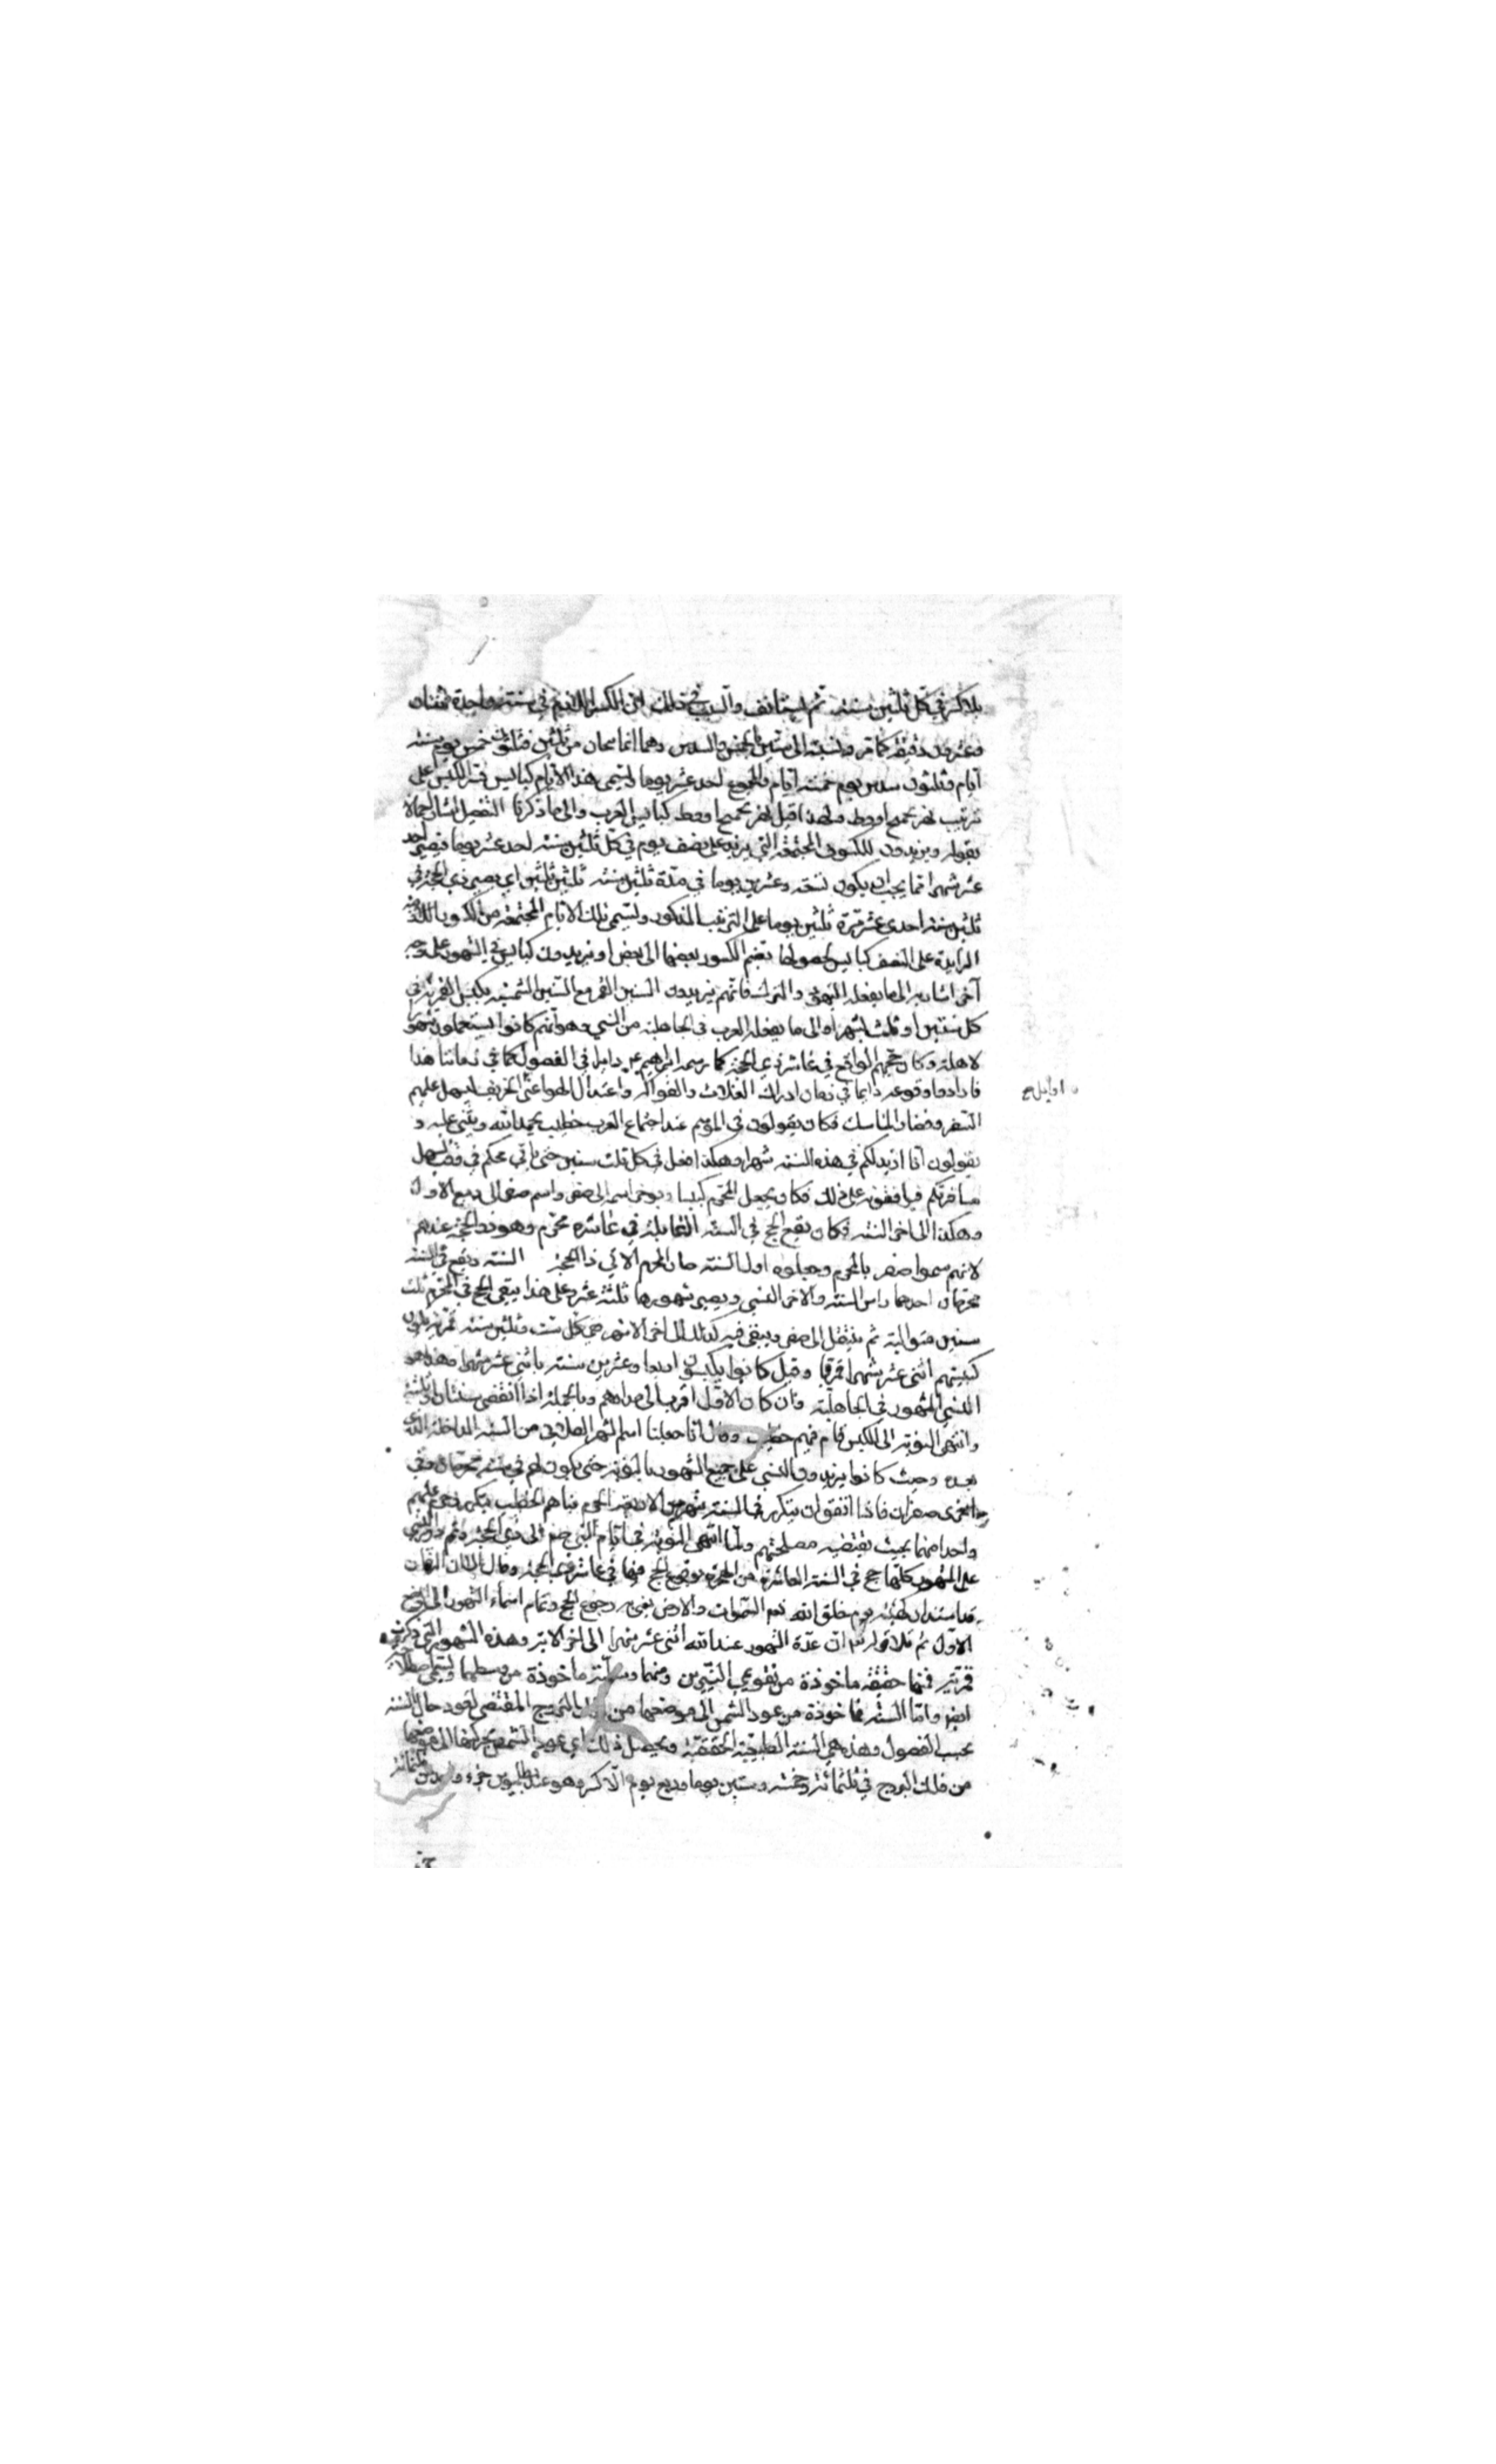 بلا كسر في كل ثلثين سنة ثم يستأنف والسبب في ذلك ان الكسر اللازم في سنة واحدة اثنتان
وعشرون دقيقة كما مر ونسبته الى ستين بالخمس والسدس وهما انما يصحان من ثلثين فثلثون خمس يوم ستة
ايام وثلثون سدس يوم خمسة ايام والمجموع احد عشر يوما وتسمى هذا الايام كبايس
ترتيب بهزيجهح ادوط ولهذا قيل بهزيجهح ادوط كبايس العرب والى ما ذكرنا التفصيل اشار
بقوله ويزيدون للكسور المجتمعة التي يزيد على نصف يوم في كل ثلثين سنة احد عشر يوما فيصير احد
عشر شهرا مما يجب ان يكون تسعة وعشرين يوما في مدة ثلثين سنة ثلثين ثلثين اي يصير ذي الحجة في
ثلثين سنة احدى عشر مرة ثلثين يوما على الترتيب المذكور وتسمى تلك الايام المجتمعة من الكسور
الزايدة على النصف كبايس لحصولها بضم الكسور بعضها الى بعض او يزيدون كبايس في الشهور على وجه
آخر اشار به الى ما يفعله اليهود والترك فانهم يزيدون السنين القمر مع السنين الشمسية بكبس القمرية في
كل سنتين او ثلث بشهر او الى ما يفعله العرب في الجاهلية من النسي وهو انهم كانوا يستعملون شهور
الاهلة وكان حجهم الواقع في عاشر ذي الحجة كما رسمه ابراهيم عم داير في الفصول كما في زماننا هذا
فارادوا وقوعه دايما في زمان ادراك الغلات والفواكه واعتدال الهوا اعني الخريف ليسهل عليهم
اوايل
السفر وقضاء المناسك فكان يقولون في الموسم عند اجتماع العرب خطيب يحمد الله ويثني عليه و
يقولون انا ازيد لكم في هذه السنة شهرا وهكذا افعل في كل ثلث سنين حتى ياتي حجكم في وقت يسهل
مسافرتكم فيوافقونه على ذلك فكان يجعل المحرم كبيسا ويوخر اسمه الى صفر واسم صفر الى ربيع الاول
وهكذا الى اخر السنة فكان يقع الحج في السنة القابلة في عاشر محرم وهو ذو الحجة عندهم
لانهم سموا صفر بالمحرم وجعلوه اول السنة صار المحرم الاتي ذا الحجة السنة ويقع في السنة
محرمان احدهما راس السنة والاخر النسي ويصير شهورها ثلثة عشر وعلى هذا يبقى الحج في المحرم ثلث
سنين متوالية ثم ينتقل الى صفر ويبقى فيه كذلك الى اخر الاشهر ففي كل ست وثلثين سنة قمرية يكون
كبيستهم اثنى عشر شهرا قمريا وقيل كانوا يكبسون اربعا وعشرين سنة باثني عشر شهرا وهذا هو
النسي المشهور في الجاهلية وان كان الاول اقرب الى مرادهم وبالجملة اذا انقضى سنتان او ثلثة
وانتهى النوبة الى الكبس قام فيهم خطيب وقال انا جعلنا اسم الشهر الفلاني من السنة الداخلة للذي
بعده وحيث كانوا يزيدون النسي على جميع الشهور بالنوبة حتى يكون لهم في سنة محرمان وفي
اخرى صفران فاذا اتفق ان يتكرر في السنة شهر من الاربعة الحرم نباهم الخطيب بتكريره وحرم عليهم
واحدا منها بحيث يقتضيه مصلحتهم ولما انتهى النوبة في ايام النبي صلعم الى ذي الحجة وتم دور النسي
على الشهور كلها حج في السنة العاشرة من الهجرة لوقوع الحج فيها في عاشر ذي الحجة وقال الا ان الزمان
قد استدار كهيئته يوم خلق الله السموات والارض يعني به رجوع الحج وتمام اسماء الشهور الى الوضع
الاول ثم تلا قوله تع ان عدة الشهور عند الله اثنى عشر شهرا الى اخر الاية وهذه الشهور التي ذكرت
قمرية فمنها حقيقية ماخوذة من تقويمي النيرين ومنها وسطية ماخوذة من وسطيهما وتسمى اصطلاحية
ايضا واما السنة فماخوذة من عود الشمس الى موضعها من فلك البروج المقتضي لعود حال السنة
بحسب الفصول وهذه هي السنة الطبيعية الحقيقية ويحصل ذلك اي عود الشمس بحركتها الى موضعها
من فلك البروج في ثلثمائة وخمسة وستين يوما وربع يوم الا كسرا وهو عند بطليموس جزء واحد من ثلثمائة